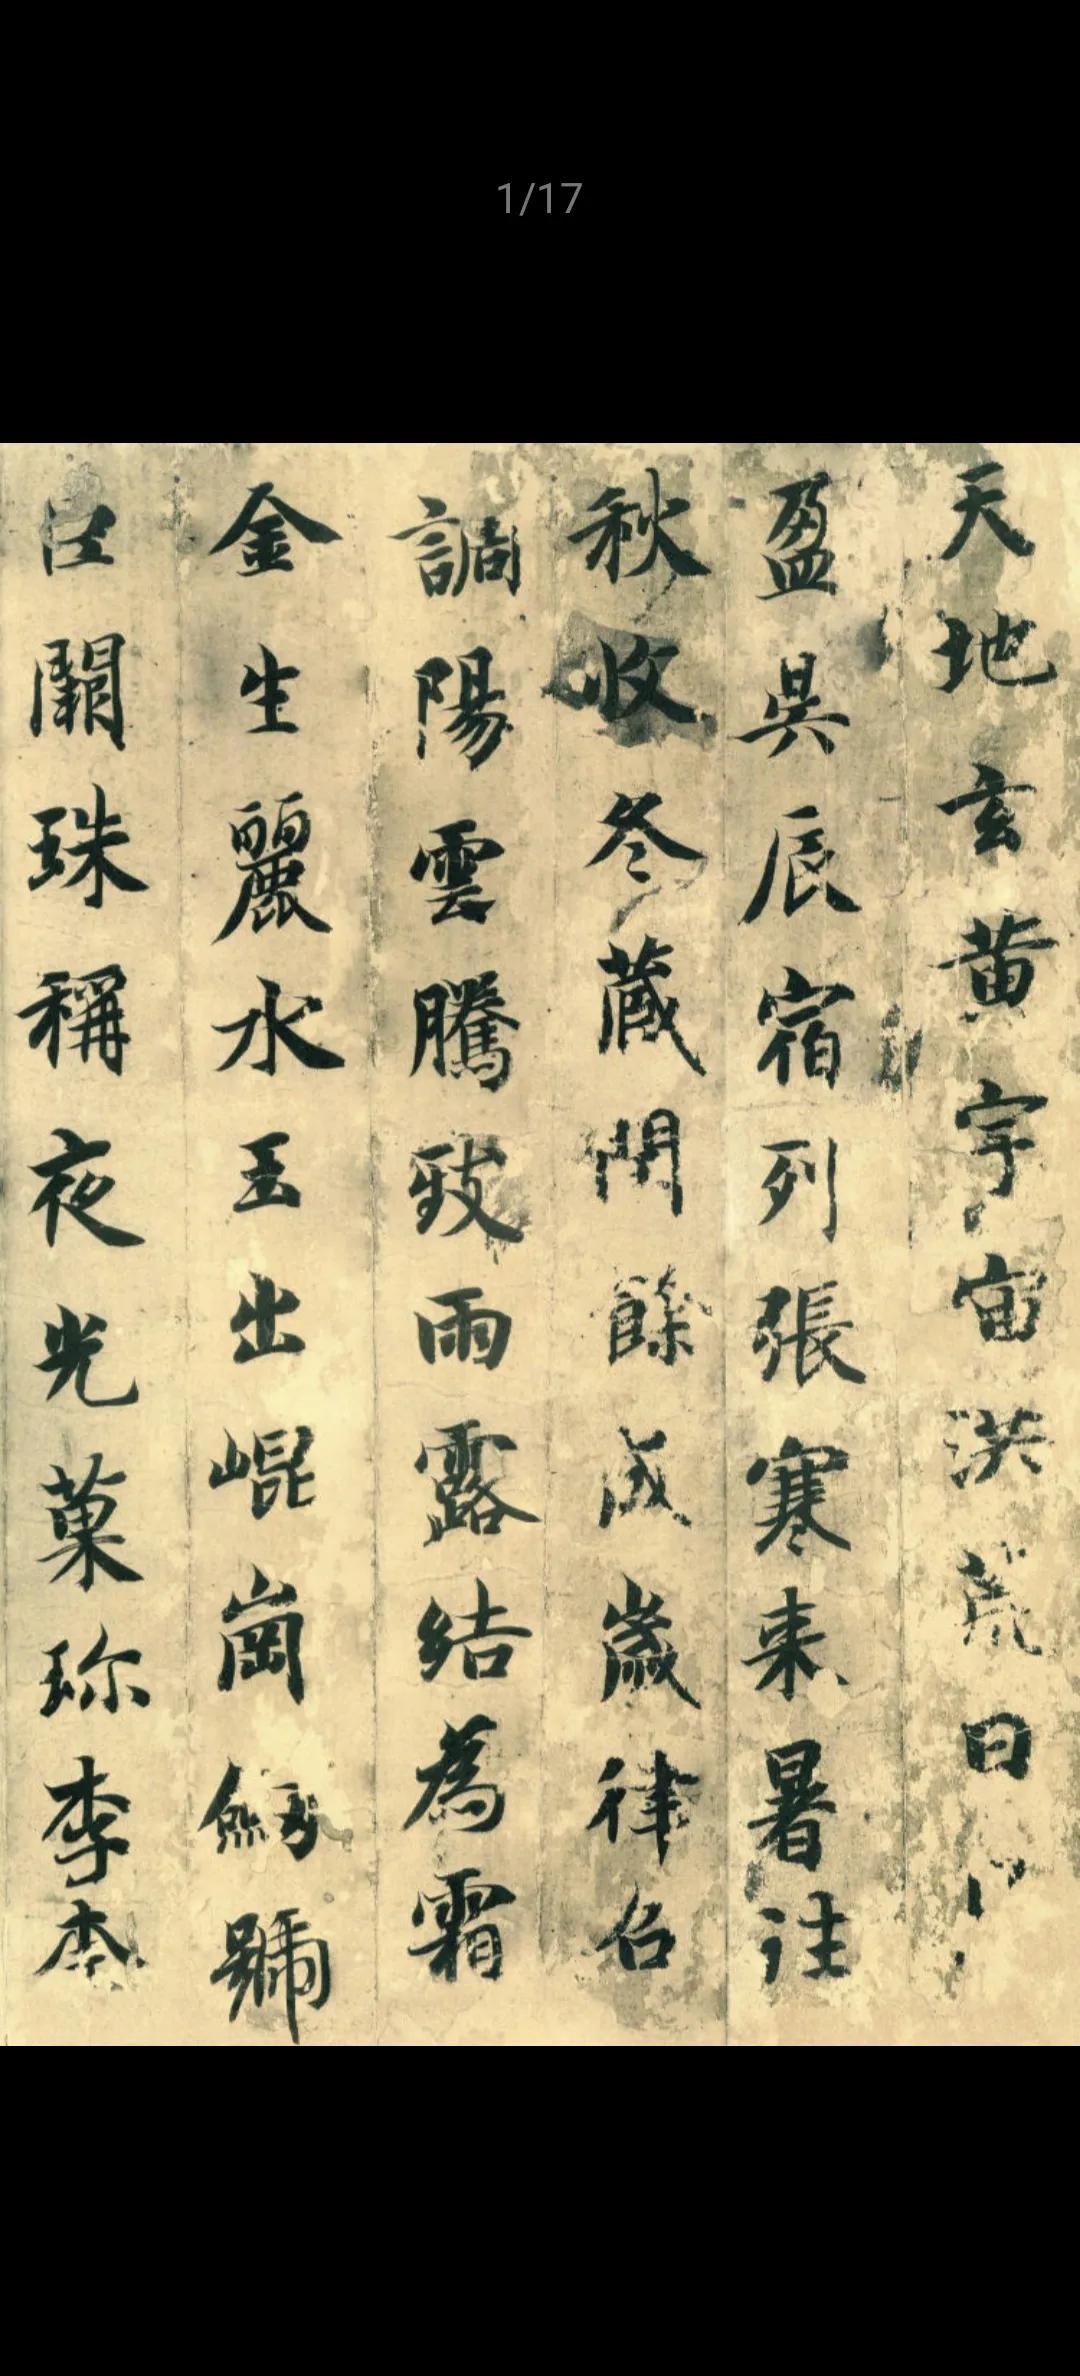 1/17
天地玄黃宇宙洪荒日
盈昃辰宿列張寒来暑往
秋收冬蔵閏餘成歲律呂
調陽雲騰致雨露結為霜
金生麗水玉出崐崗劔號
巨闕珠稱夜光菓珎李柰